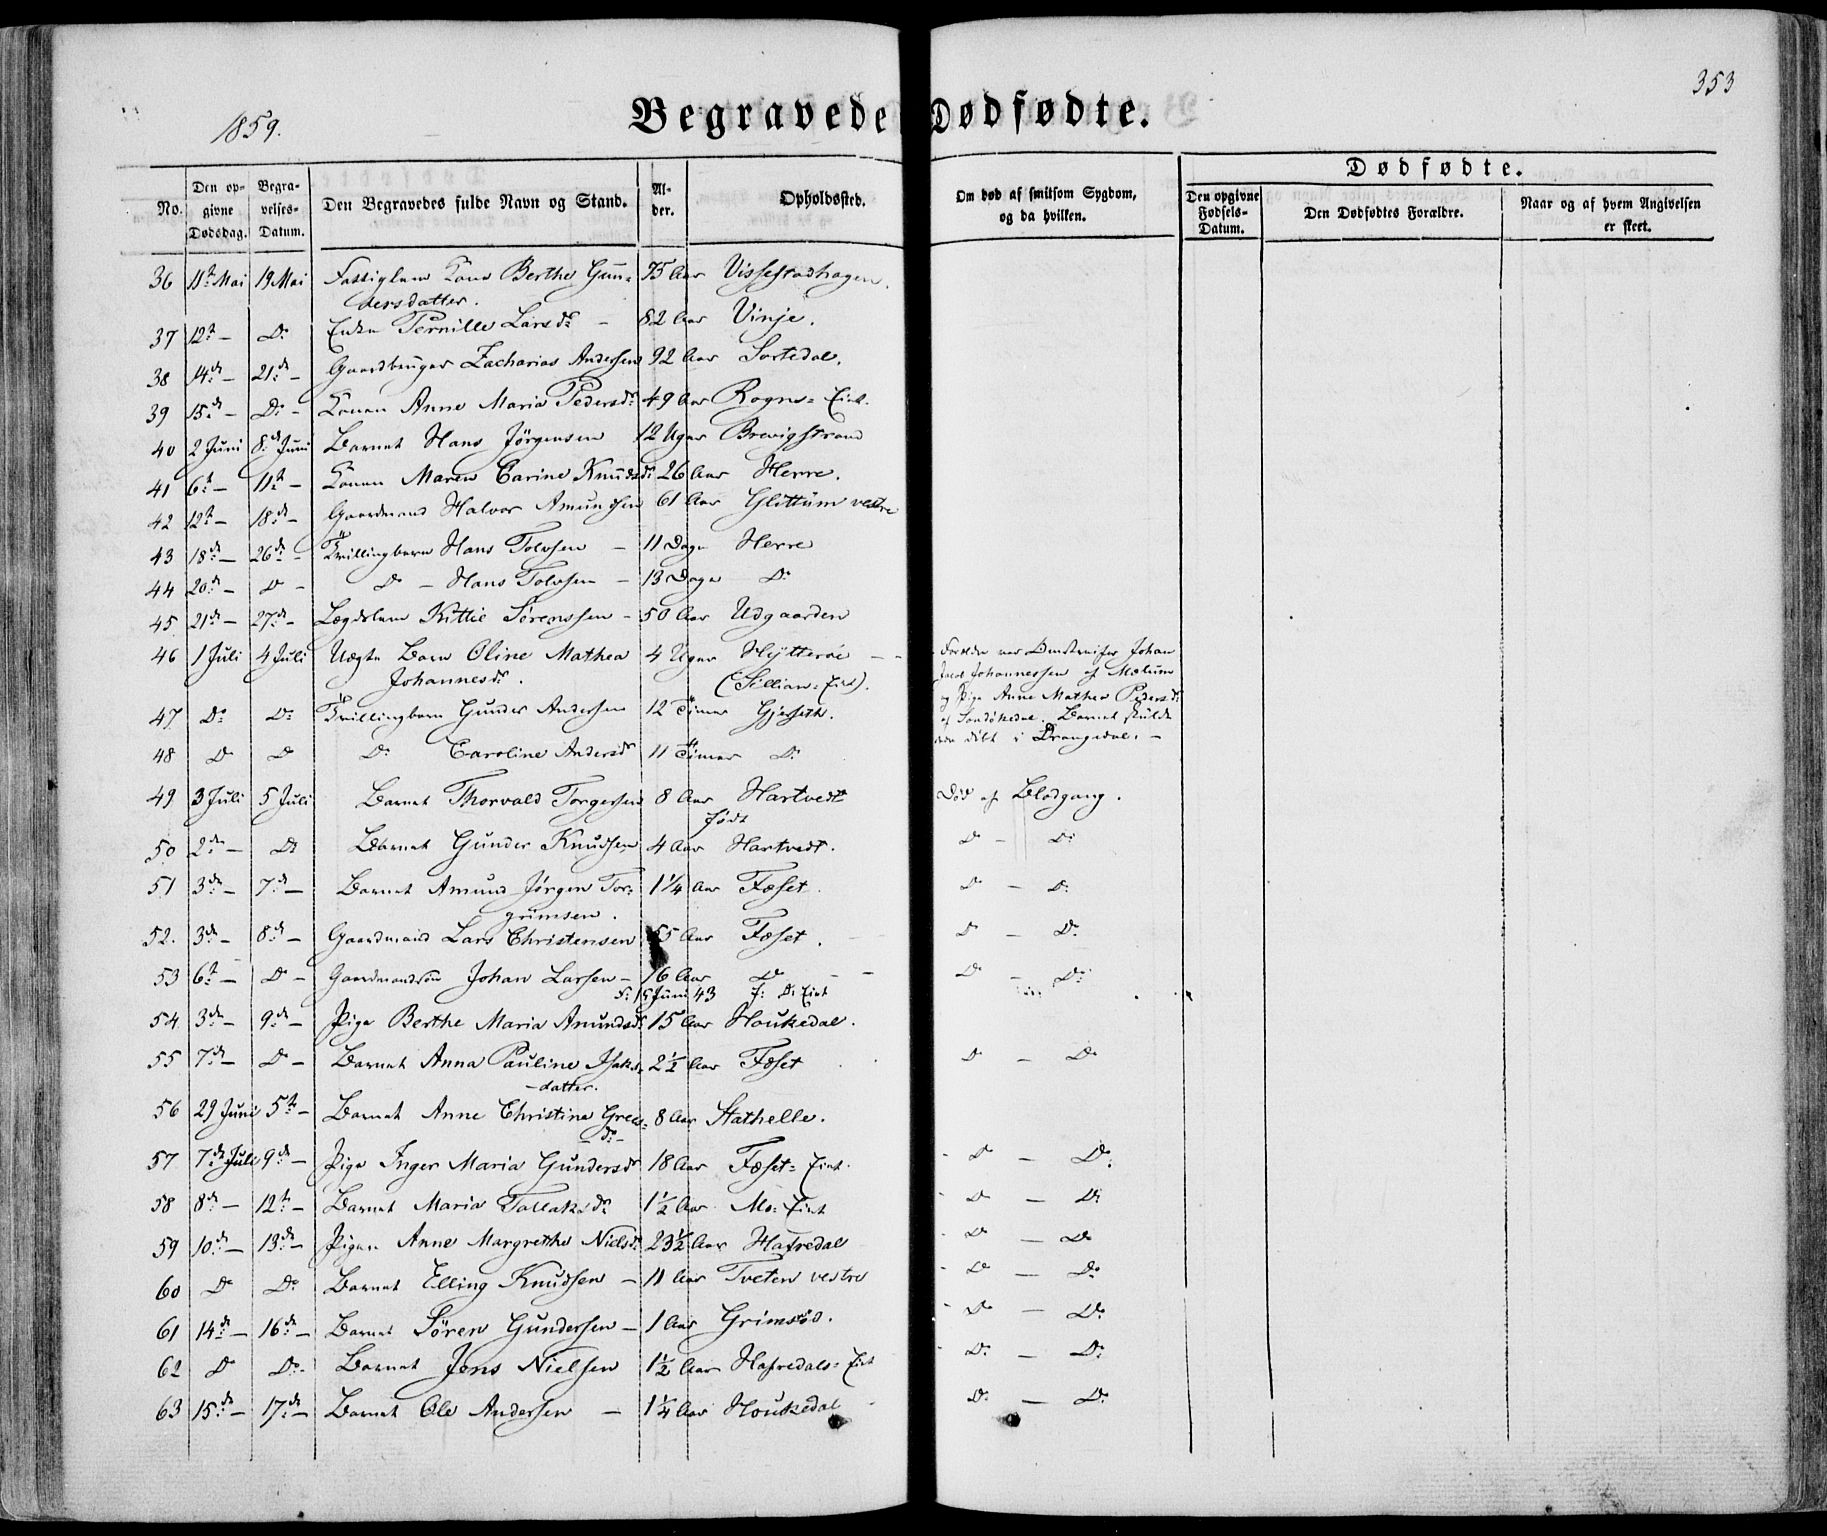 353
1859.
Begravede Dødfødte.
Dødfødte.
No. Den opgivne Dødsdag. Begravelses-Datum. Den Begravedes fulde Navn og Stand. Alder. Opholdssted. Om død af smitsom Sygdom, og da hvilken. Den opgivne Fødsels-Datum. Den Dødfødtes Forældre. Naar og af hvem Angivelsen er skeet.
36 11te Mai 19 Mai Fattiglem Kone Berthe Gun= 75 Aar Vissestadhagen.
dersdatter.
37 12te — Do Enke Pernille Larsdr — 82 Aar Vinje.
38 14de — 21de — Gaardbruger Zacharias Andersen 92 Aar Sortedal.
39 15de — Do — Konen Anne Maria Pedersdr 49 Aar Rogns= Eiet.
40 2 Juni 8de Juni Barnet Hans Jörgensen 12 Uger Brevigstrand
41 6te — 11te — Konen Maren Carine Knudsdr 26 Aar Herre.
42 12te — 18de — Gaardmand Halvor Amundsen 61 Aar Glittum vestre
43 18de — 26de — Tvillingbarn Hans Tolvsen — 11 Dage Herre
44 20de — Do — Do — Hans Tolvsen — 13 Dage Do
45 21de — 27de — Lægdslem Kittil Sörenssen — 50 Aar Udgaarden
46 1 Juli 4 Juli Uægte Barn Oline Mathea 4 Uger Hytteröe — — Forældre var Omstreifer Johan
Johannesdr. (Sillian= Eiet). Johannessen af Mælum
og Pige Anne Mathea Pedersdr
47 Do Do Tvillingbarn Gunder Andersen 12 Timer Gjerseth. af Sandökedal. Barnet skulde
döbt i Drangedal. —
48 Do Do Do Caroline Andersdr 11 Timer Do
49 3 Juli 5 Juli Barnet Thorvald Torgersen 8 Aar Hartvedt Död af Blodgang.
födt
50 2de — Do Barnet Gunder Knudsen 4 Aar Hartvedt. Do — Do
51 3de — 7de — Barnet Amund Jörgen Tor= 1 1/4 Aar Fæset. Do — Do
grimsen.
52. 3de — 8de — Gaardmand Lars Christensen 55 Aar Fæset. Do — Do
53 6te — Do — Gaardmandssön Johan Larsen — 16 Aar Do — — Do — Do
F: 15 Juni 43 F: D: Eiet
54 3de — 9de — Pige Berthe Maria Amundsdr 15 Aar Houkedal.
55 7de — Do — Barnet Anna Pauline Isaks= 2 1/2 Aar Fæset Do — Do
— datter.
56 29 Juni 5te — Barnet Anne Christine Grees= 8 Aar Stathelle.
— dr —
57 7de Juli 9de — Pige Inger Maria Gundersdr 18 Aar Fæset= Eiet. Do — Do
58 8de — 12te — Barnet Maria Tollaksdr 1 1/2 Aar Mo= Eiet Do — Do
59 10de — 13de — Pigen Anne Margrethe Nielsdr 23 1/2 Aar Hafredal Do — Do
60 Do Do Barnet Elling Knudsen — 11 Aar Tveten vestre Do — Do
61 14de — 16de — Barnet Sören Gundersen — 1 Aar Grimsöd. Do — Do
62 Do Do Barnet Jens Nielsen 1 1/2 Aar Hafredals= Eiet Do — Do
63 15de — 17de — Barnet Ole Andersen — 1 1/4 Aar Houkedal Do — Do